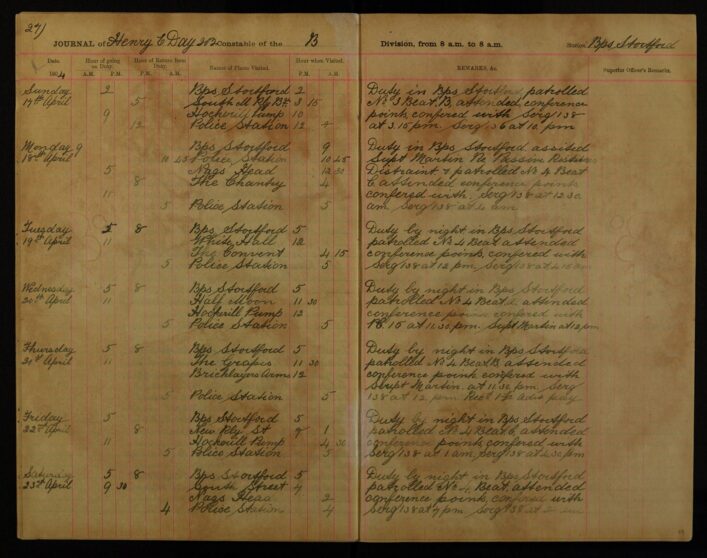 27)
JOURNAL of Henry E Day 202 Constable of the B Division, from 8 a.m. to 8 a.m. Station, Bps Stortford
Date. Hour of going on Duty. Hour of Return from Duty. Names of Places Visited. Hour when Visited. REMARKS, &c. Superior Officer's Remarks.
1904 A.M. P.M. A.M. P.M. P.M. A.M.
Sunday 2 Bps Stortford 2 Duty in Bps Stortford patrolled
17th April 5 South St 3 15 No 3 Beat B, attended conference
9 Hockerill Pump 10 point, confered with Serg 138
12 Police Station 12 at 3.15 pm. Serg 36 at 10 pm
Monday 9 Bps Stortford 9 Duty in Bps Stortford assisted
18th April 10 45 Police Station 10 45 Supt Martin Re
5 Nags Head 12 30 Distraint & patrolled No 4 Beat
8 The Chantry 4 attended conference points
11 confered with Serg 138 at 12.30
5 Police Station 5 am. Serg 138 at 4 am
Tuesday 5 8 Bps Stortford 5 Duty by night in Bps Stortford
19th April 11 White Hall 12 patrolled No 4 Beat attended
The Convent 4 15 conference points, confered with
5 Police Station 5 Serg 138 at 12 pm. Serg 138 at 4.15 am
Wednesday 5 8 Bps Stortford 5 Duty by night in Bps Stortford
20th April 11 Half Moon 11 30 patrolled No 4 Beat attended
Hockerill Pump 12 conference points confered with
5 Police Station 5 PC 15 at 11.30 pm. Supt Martin at 12 pm
Thursday 5 8 Bps Stortford 5 Duty by night in Bps Stortford
21st April 11 The Grapes 11 30 patrolled No 4 Beat B attended
Bricklayers Arms 12 conference point confered with
Supt Martin at 11.30 pm. Serg
5 Police Station 5 138 at 12 pm. pay
Friday 5 Bps Stortford 5 Duty by night in Bps Stortford
22nd April 8 New Rly St 1 patrolled No 4 Beat attended
11 Hockerill Pump 4 30 conference points, confered with
5 Police Station 5 Serg 138 at 1 am, Serg 138 at 4.30 am
Saturday 5 8 Bps Stortford 5 Duty by night in Bps Stortford
23rd April 9 30 South Street patrolled No Beat, attended
Nags Head 2 conference points, confered with
4 Police Station 4 Serg 138 at pm. Serg 138 at 2 am